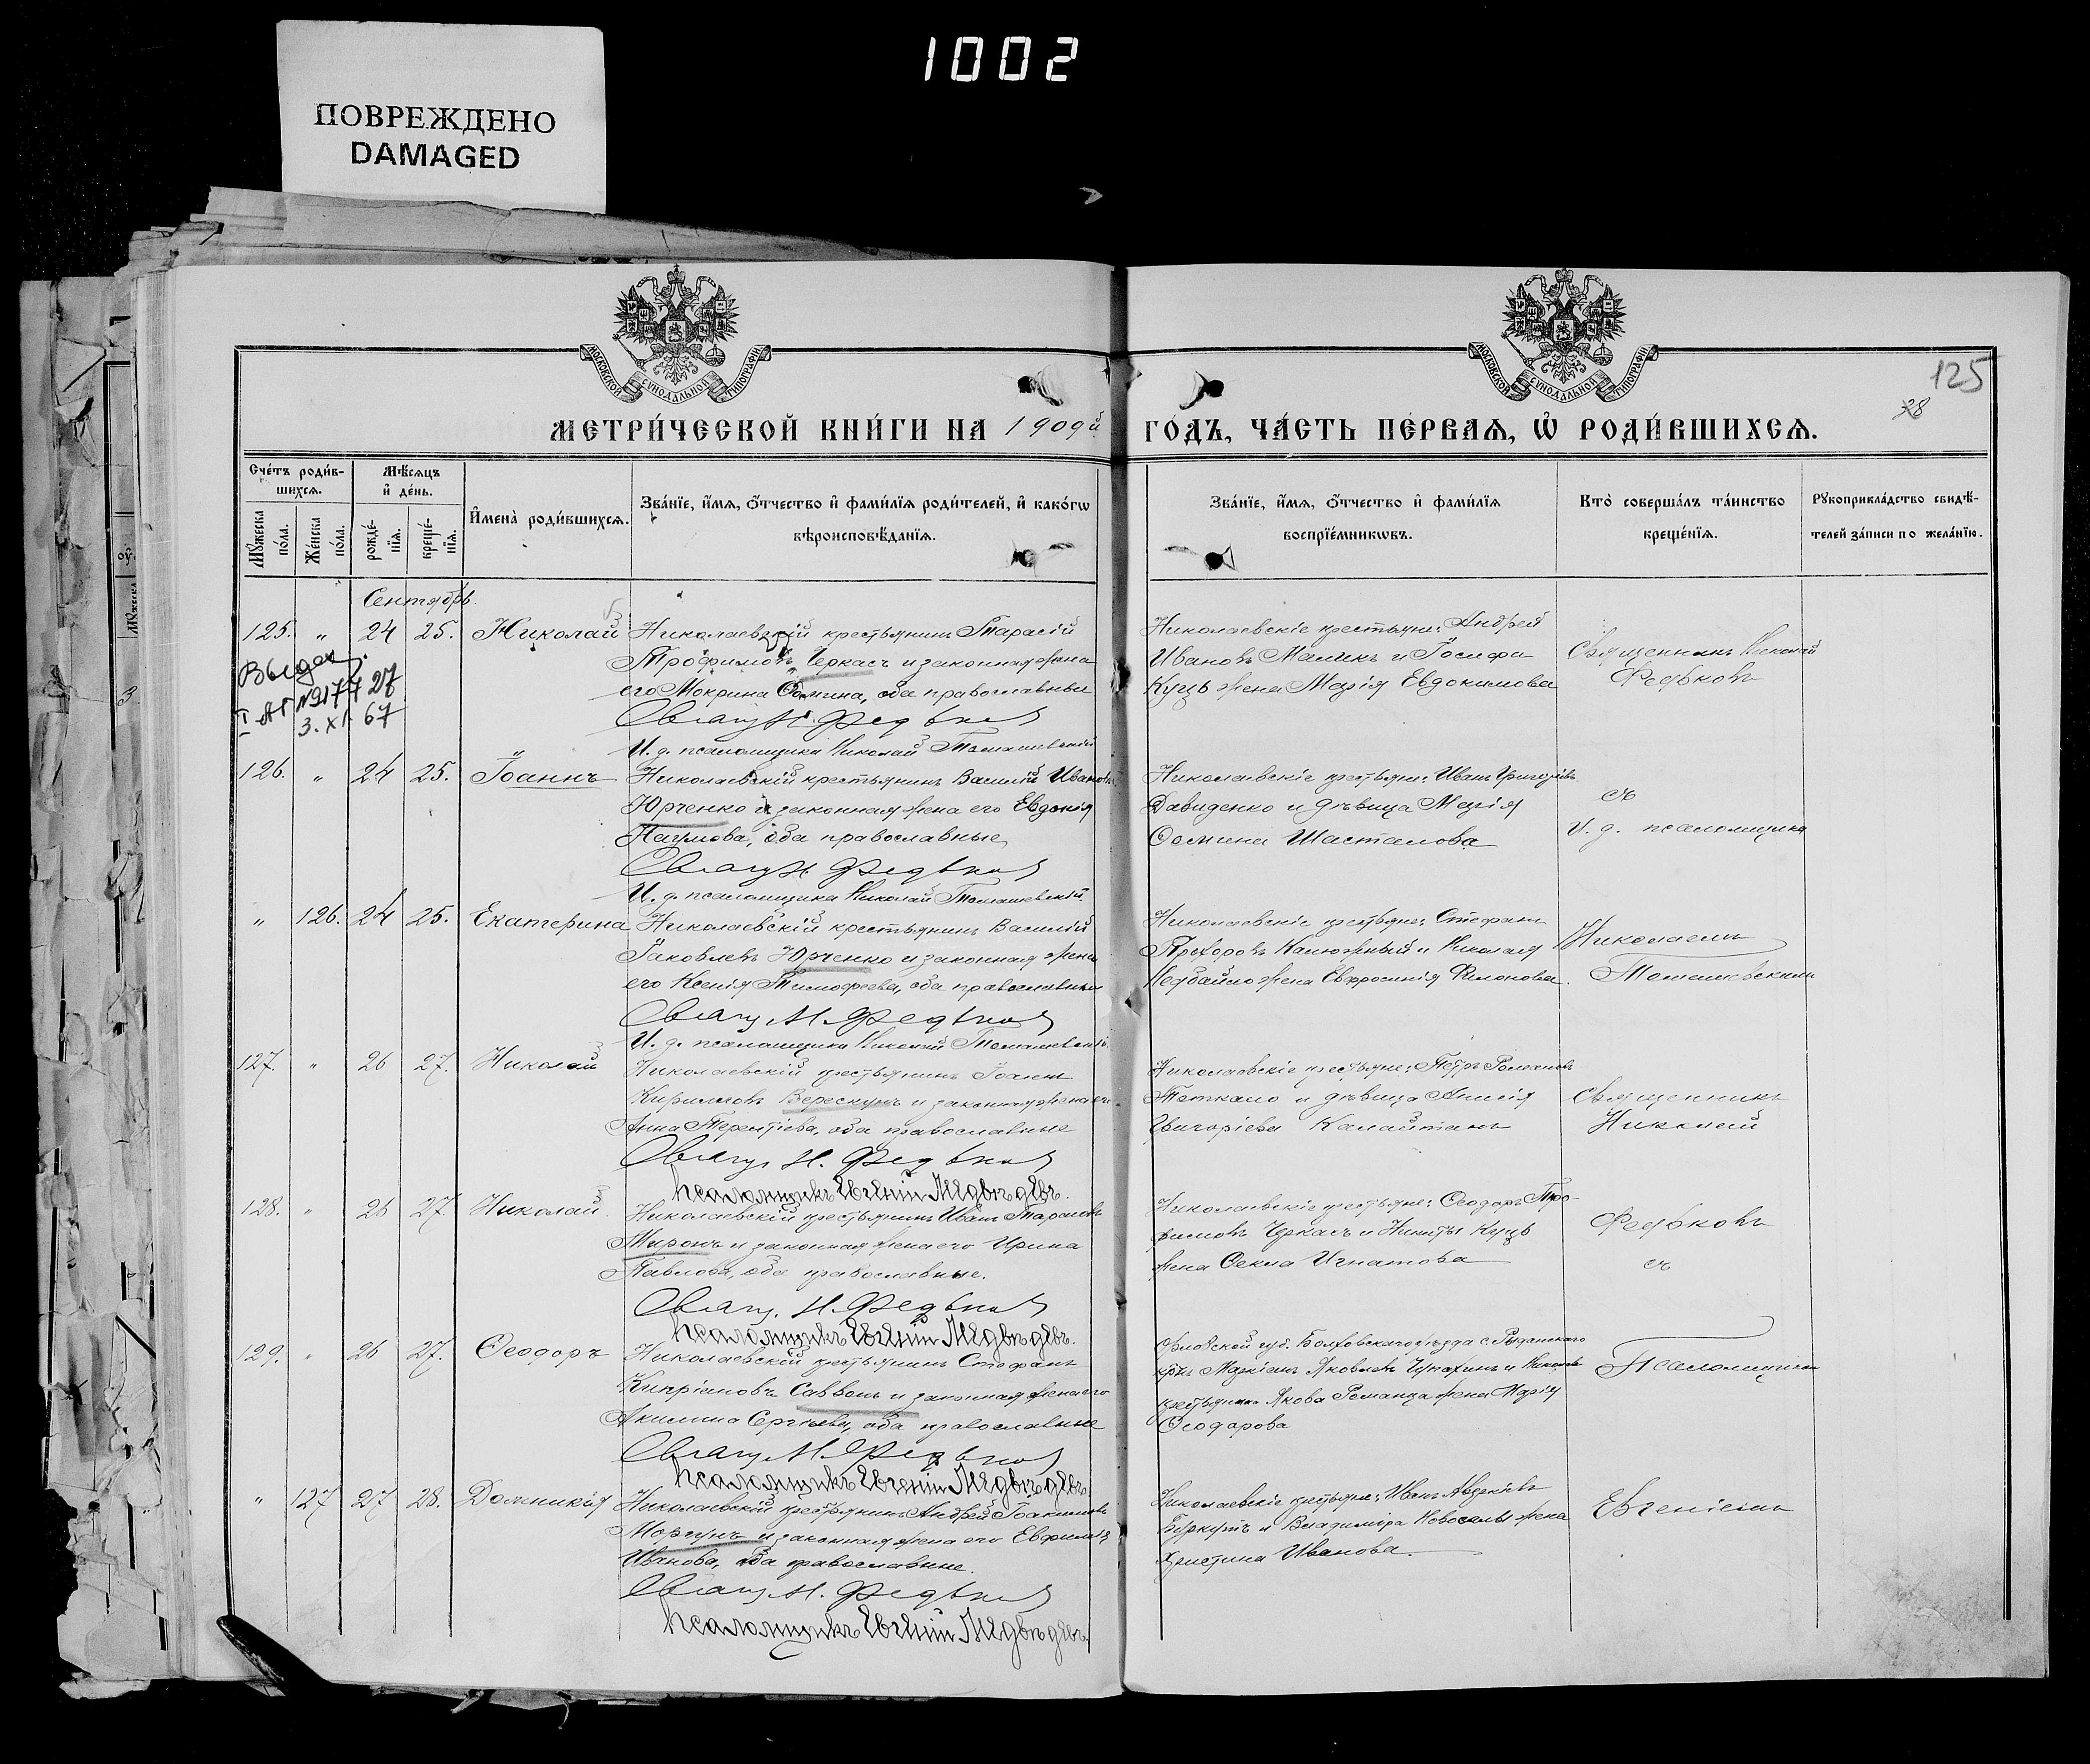 1002
ПОВРЕЖДЕНО
DAMAGED
МОСКОВСКОЙ СѴНОДАЛЬНОЙ ТИПОГРАФІИ
МОСКОВСКОЙ СѴНОДАЛЬНОЙ ТИПОГРАФІИ
125
28
МЕТРИ́ЧЕСКОЙ КНИ́ГИ НА 1909й
ГО́ДЪ, ЧА́СТЬ ПЕ́РВАѦ, Ѡ҆ РОДИ́ВШИХСѦ.
Сче́тъ роди́в-
шихсѧ.
Мѣ́сѧцъ
и҆ де́нь.
И҆мена̀ роди́вшихсѧ.
Зва́нїе, и҆́мѧ, ѻ҆́тчество и҆ фами́лїѧ роди́телей, и҆ како́гѡ
вѣроисповѣ́данїѧ.
Зва́нїе, и҆́мѧ, ѻ҆́тчество и҆ фами́лїѧ
воспрїе́мникѡвъ.
Кто̀ соверша́лъ та́инство
креще́нїѧ.
Рꙋкоприкла́дство свидѣ́-
телей за́писи по жела́нїю.
Мꙋ́жеска
по́ла.
Же́нска
по́ла.
рожде́-
нїѧ.
креще́-
нїѧ.
Сентябрь
125. " 24 25. Николай
Николаевскій крестьянинъ Тарасій
Трофимовъ Черкасъ и законная жена
его Мокрина Ѳомина, оба православные
Свящ. Н. Федьковъ
И. д. псаломщика Николай Томашевскій
Николаевскіе крестьяне: Андрей
Ивановъ Маликъ и Іосифа
Куцъ жена Марія Евдокимова
Священникъ Николай
Федьковъ
Выдан
I АГ №217427
3. XI 67
126. " 24 25. Іоаннъ
Николаевскій крестьянинъ Василій Ивановъ
Юрченко и законная жена его Евдокія
Наумова, оба православные
Свящ. Н. Федьковъ
И. д. псаломщика Николай Томашевскій
Николаевскіе крестьяне: Иванъ Григорьевъ
Давиденко и дѣвица Марія
Ѳомина Шасталова
съ
И. д. псаломщика
" 126. 24 25. Екатерина
Николаевскій крестьянинъ Василій
Іаковлевъ Юрченко и законная жена
его Ксенія Тимофеева, оба православные
Свящ. Н. Федьковъ
И. д. псаломщика Николай Томашевскій
Николаевскіе крестьяне: Стефанъ
Прохоровъ Калюжный и Николая
Недбайло жена Евфросинія Филонова.
Николаемъ
Томашевскимъ
127. " 26 27. Николай
Николаевскій крестьянинъ Іоаннъ
Кирилловъ Верескунъ и законная жена его
Анна Терентіева, оба православные
Свящ. Н. Федьковъ
Псаломщикъ Евгеній Медвѣдевъ.
Николаевскіе крестьяне: Петръ Романовъ
Теткало и дѣвица Анисія
Григоріева Калайтанъ
Священникъ
Николай
128. " 26 27. Николай
Николаевскій крестьянинъ Иванъ Тарасовъ
Миронъ и законная жена его Ирина
Павлова, оба православные.
Свящ. Н. Федьковъ
Псаломщикъ Евгеній Медвѣдевъ.
Николаевскіе крестьяне: Ѳеодоръ Тро-
фимовъ Черкасъ и Никиты Куцъ
жена Ѳекла Игнатова
Федьковъ
съ
129. " 26 27. Ѳеодоръ
Николаевскій крестьянинъ Стефанъ
Кипріановъ Саввонъ и законная жена его
Акилина Сергіева, оба православные
Свящ. Н. Федьковъ
Псаломщикъ Евгеній Медвѣдевъ.
Орловской губ. Болховскаго уѣзда с.
кр-нъ Маркіанъ Яковлевъ и Николаев.
крестьянина Якова Романца жена Марія
Ѳеодорова
Псаломщикомъ
" 127 27 28. Домникія
Николаевскій крестьянинъ Андрей Іоакимовъ
Моргунъ и законная жена его Евфимія
Иванова, оба православные.
Свящ. Н. Федьковъ
Псаломщикъ Евгеній Медвѣдевъ.
Николаевскіе крестьяне: Иванъ Авдеевъ
Беркутъ и Владиміра Новоселы жена
Христина Иванова.
Евгеніемъ